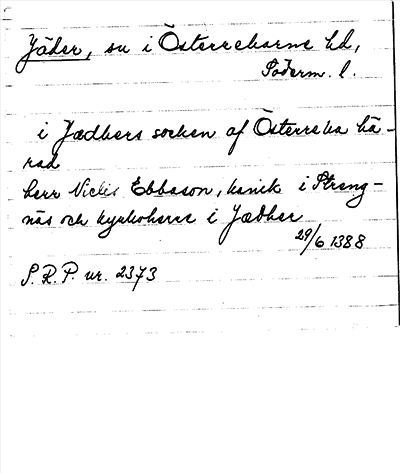 Jäder, sn i Österrekarne hd,
Söderm. l.
i Jædhers socken af Österreka hä-
rad
herr Niclis Ebbason, kanik i Streng-
näs och kyrkoherre i Jædher
29/6 1388
S.R.P. nr. 2373